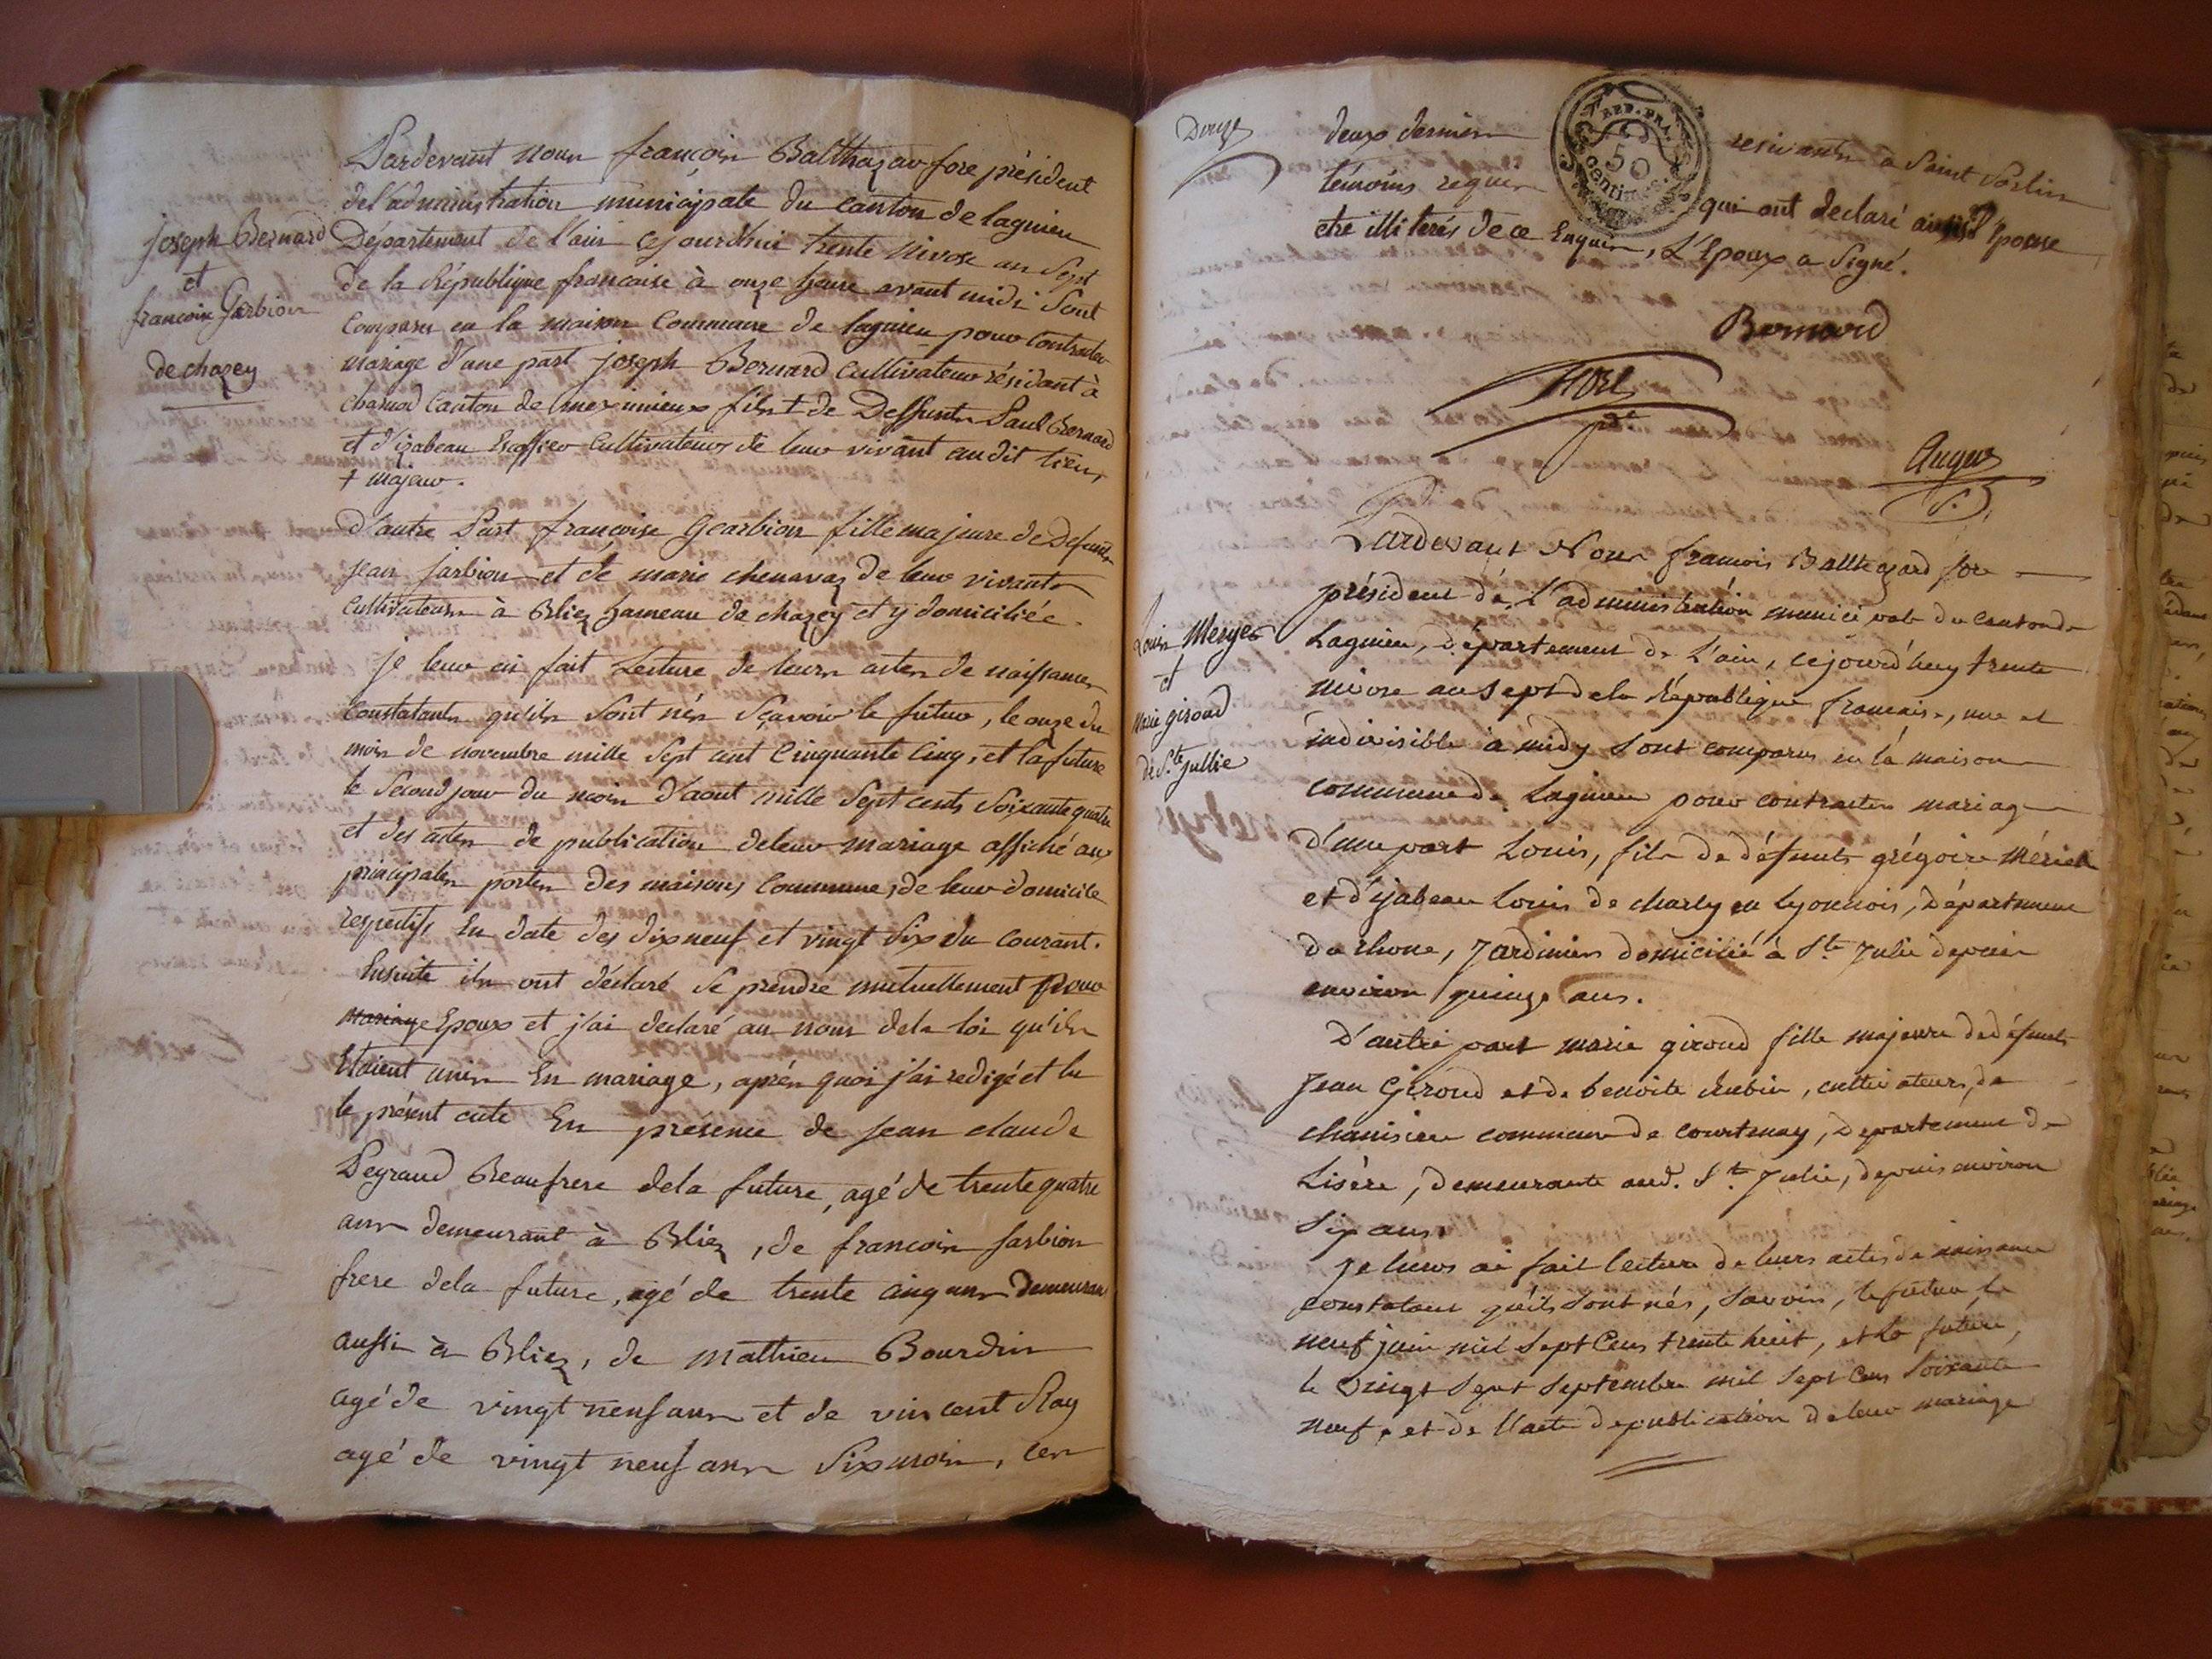 joseph Bernard
et
francoise Gerbion
de chazey
Pardevant nous françois Balthazar fore président
de l'administration municipale du canton de lagnieu
Département de l'ain cejourdhui trente Nivose an Sept
de la République francaise à onze heure avant midi Sont
comparus en la maison Commune de lagnieu pour Contracter
mariage d'une part joseph Bernard Cultivateur résidant à
charnod Canton de meximieux fils + de Deffunts Paul Bernard
et d'izabeau Cultivateurs de leur vivant audit lieu,
+ majeur.
D'autre Part françoise Gearbion fille majeure de Defunts
jean jarbion et de marie chenavaz de leur vivants
Cultivateurs à Bliez hameau de chazey et y domiciliée.
je leur ai fait Lecture de leurs actes de naissances
Constatants qu'ils sont nés Sçavoir le futur, le onze du
mois de novembre mille Sept cent Cinquante Cinq, et la future
le Second jour du mois d'aout mille Sept cents Soixante quatre
et des actes de publication de leur mariage affiché aux
principales portes des maisons Commune, de leur domicile
respectifs, En date des dixneuf et vingt Six du Courant.
Ensuite ils ont déclaré Se prendre mutuellement pour
mariage Epoux et j'ai declaré au nom dela loi qu'ils
Etoient unis En mariage, après quoi j'ai redigé et lu
le présent acte En présence de jean claude
Legrand Beaufrere dela future, agé de trente quatre
ans demeurant à Bliez, de francois jarbion
frere dela future, agé de trente cinq ans Demeurant
aussi à Bliez, de Mathieu Bourdin
agé de vingt neuf ans et de vincent Ray
agé de vingt neuf ans Six mois, ces
Douze
deux derniers residants à Saint Sorlin
témoins requis qui ont declaré ainsi l'Epouse
etre illiterés de ce Enquis, L'Epoux a Signé.
REP. FRA.
50
Centimes
Bernard
FORE
pdt
Auger
S.
Louis Meryer
et
Marie giroud
de Ste jullie
Pardevant Nous francois Balthazard fore
président de L'administration municipale du Canton de
Lagnieu, département de L'ain, cejourd'huy trente
nivose an Sept de la République francaise, une et
indivisible à midy Sont comparus en la maison
commune de Lagnieu pour contracter mariage
D'une part Louis, fils de défunts grégoire Mérier
et d'yzabeau Louis de charly en lyonnois, Département
du rhone, Jardinier domicilié à Ste Julie depuis
environ quinze ans.
D'autre part marie giroud fille majeure de défunts
Jean Giroud et de benoite Rubin, cultivateurs, de
chanisieu commune de Courtenay, Departement de
Lisère, demeurante aud. Ste Julie, depuis environ
Six ans.
Je leurs ai fait lecture de leurs actes de naissance
constatant qu'ils sont nés, Savoir, le futur, le
neuf juin mil Sept Cens trente huit, et la future,
le vingt Sept Septembre mil Sept Cens Soixante
neuf, et de l'acte de publication de leur mariage